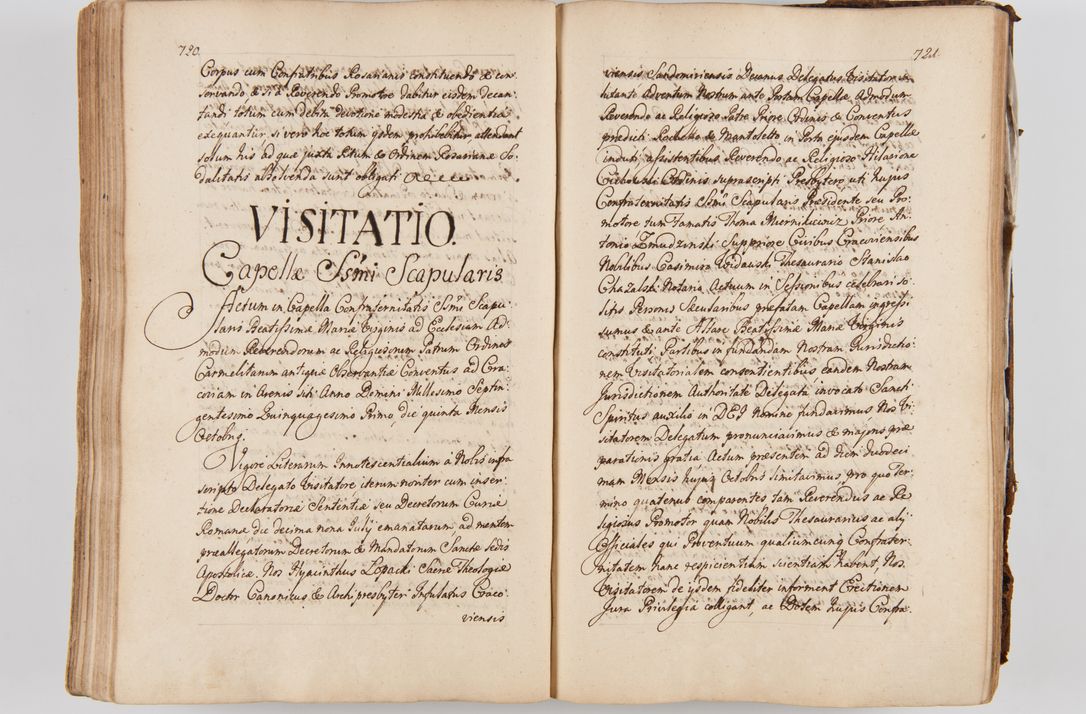 720.
Corpus cum Confratribus Rosarianis constituendo & con-
servando & si a Reverendo Promotore dabitur eisdem decan-
tandi totum cum debita devotione modestia & obedientia
exequantur si vero hoc totum ijsdem prohibebitur, attendant
solum his ad quæ juxta Ritum & Ordinem Rosarianæ So-
dalitatis absolvenda sunt obligati
VISITATIO.
Capellæ Ssmi Scapularis
Actum in Capella Confraternitatis Ssmi Scapu-
laris Beatissimæ Mariæ Virginis ad Ecclesiam Ad-
modum Reverendorum ac Religiosorum Patrum Ordines
Carmelitarum antiquæ Observantiæ Conventus ad Cra-
coviam in Arenis siti Anno Domini Millesimo Septin-
gentesimo Quinquagesimo Primo die quinta Mensis
Octobris.
Vigore Literarum Innotescentialium a Nobis infra
scripto Delegato Visitatore iterum noviter cum inser-
tione Declaratoriæ Sententiæ seu Decretorum Curiæ
Romanæ die decima nona Julij emanatarum ad mentem
præallegatorum Decretorum & Mandatorum Sanctæ Sedis
Apostolicæ. Nos Hyacinthus Łopacki Sacræ Theologiæ
Doctor Canonicus & Archipresbyter Infulatus Craco-
viensis
721.
viensis Sandomiriensis Decanus Delegatus Visitator
ante Adventum Nostrum ante Portam Capellæ Admodum
Reverendo ac Religioso Patre Priore Ordinis & Conventus
prædicti Rochetto & Mantoletto in Porta ejusdem Capellæ
induti assistentibus Reverendo ac Religioso Hilarione
Cichowski Ordinis suprascripti Presbytero uti hujus
Confraternitatis Ssmi Scapularis Præsidente seu Pro-
motore tum Famatis Thoma Miernikiewicz Priore An-
tonio Zmudzinski Suppriore Civibus Cracoviensibus
Nobilibus Casimiro Widawski Thesaurario Stanislao
Chazalski Notario Actuum in Sessionibus celebrari so-
litis Personis Sæcularibus præfatam Capellam ingressi
sumus & ante Altare Beatissimæ Mariæ Virginis
constituti Partibus in fundandam Nostram Jurisdictio-
nem Visitatorialem consentientibus eandem Nostram
Jurisdictionem Authoritate Delegata invocato Sancti
Spiritus auxilio in DEI Nomine fundavimus Nos Vi-
sitatorem Delegatum pronunciavimus & majoris præ
parationis gratia Actum præsentem ad diem duodeci-
mam Mensis hujus Octobris limitavimus, pro quo Ter-
mino quatenus comparentes tam Reverendus ac Re-
ligiosus Promotor quam Nobilis Thesaurarius ac alij
Officiales qui Proventuum qualiumcunq Confrater-
nitatem hanc respicientium scientiam habent, Nos
Visitatorem de ijsdem fideliter informent Erectionem
Jura Privilegia colligant, ac Dotem hujus Confra-